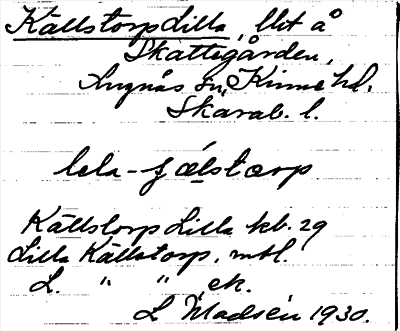 Källstorp Lilla, lht å
Skattegården,
Angnäs sn, Kinne hd.
Skarab. l.
lela-ɟälstɔrp
Källstorp Lilla kb. 29
Lilla Källstorp, mtl.
L. " " ek.
L Madsén 1930.